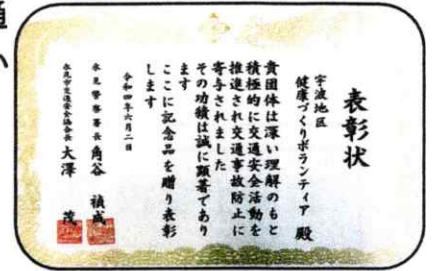 通
い
表彰状
宇波地区
健康づくりボランティア 殿
貴団体は深い理解のもと
積極的に交通安全活動を
推進され交通事故防止に
寄与されました
その功績は誠に顕著であり
ます
ここに記念品を贈り表彰
します
令和四年六月二日
氷見警察署長 角谷 禎成
氷見市交通安全協会長 大澤 茂